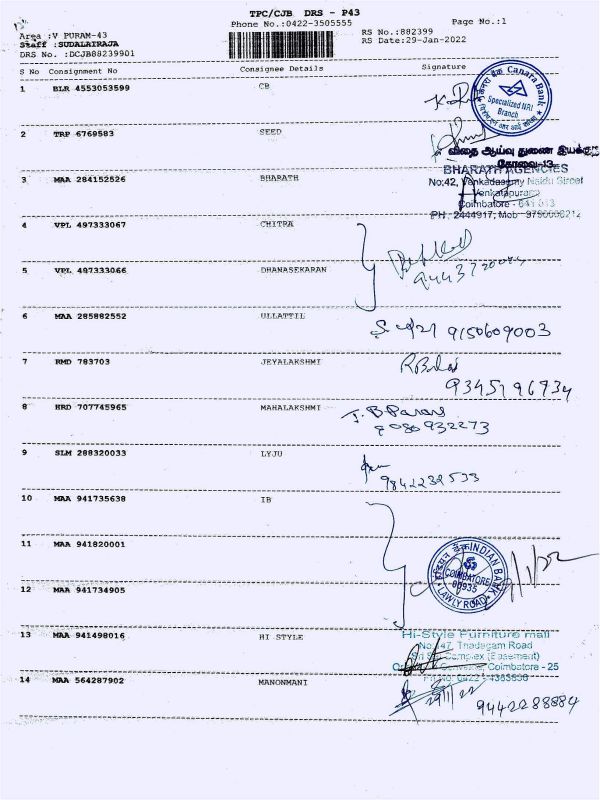 TPC/CJB DRS - P43
Phone No.:0422-3505555
Page No.:1
Area :V PURAM-43
Staff :SUDALAIRAJA
DRS No. :DCJB88239901
RS No.:882399
RS Date:29-Jan-2022
S No Consignment No Consignee Details Signature
1 BLR 4553053599 CB
Canara Bank
Specialized NRI
Branch
2 TRP 6769583 SEED
விதை ஆய்வு துணை இயக்குநர்
கோவை-13
3 MAA 284152526 BHARATH
BHARATH AGENCIES
No:42, Venkadasamy Naidu Street
Venkatapuram
Coimbatore - 641 013
4 VPL 497333067 CHITRA
5 VPL 497333066 DHANASEKARAN
6 MAA 285882552 ULLATTIL
9150609003
7 RMD 783703 JEYALAKSHMI
9345796734
8 HRD 707745965 MAHALAKSHMI
9080932273
9 SLM 288320033 LYJU
10 MAA 941735638 IB
11 MAA 941820001
INDIAN BANK
COIMBATORE
LAWLY ROAD
12 MAA 941734905
13 MAA 941498016 HI STYLE
Hi-Style Furniture mall
No:147, Thadagam Road
Coimbatore - 25
14 MAA 564287902 MANONMANI
29/1/22
9442288884